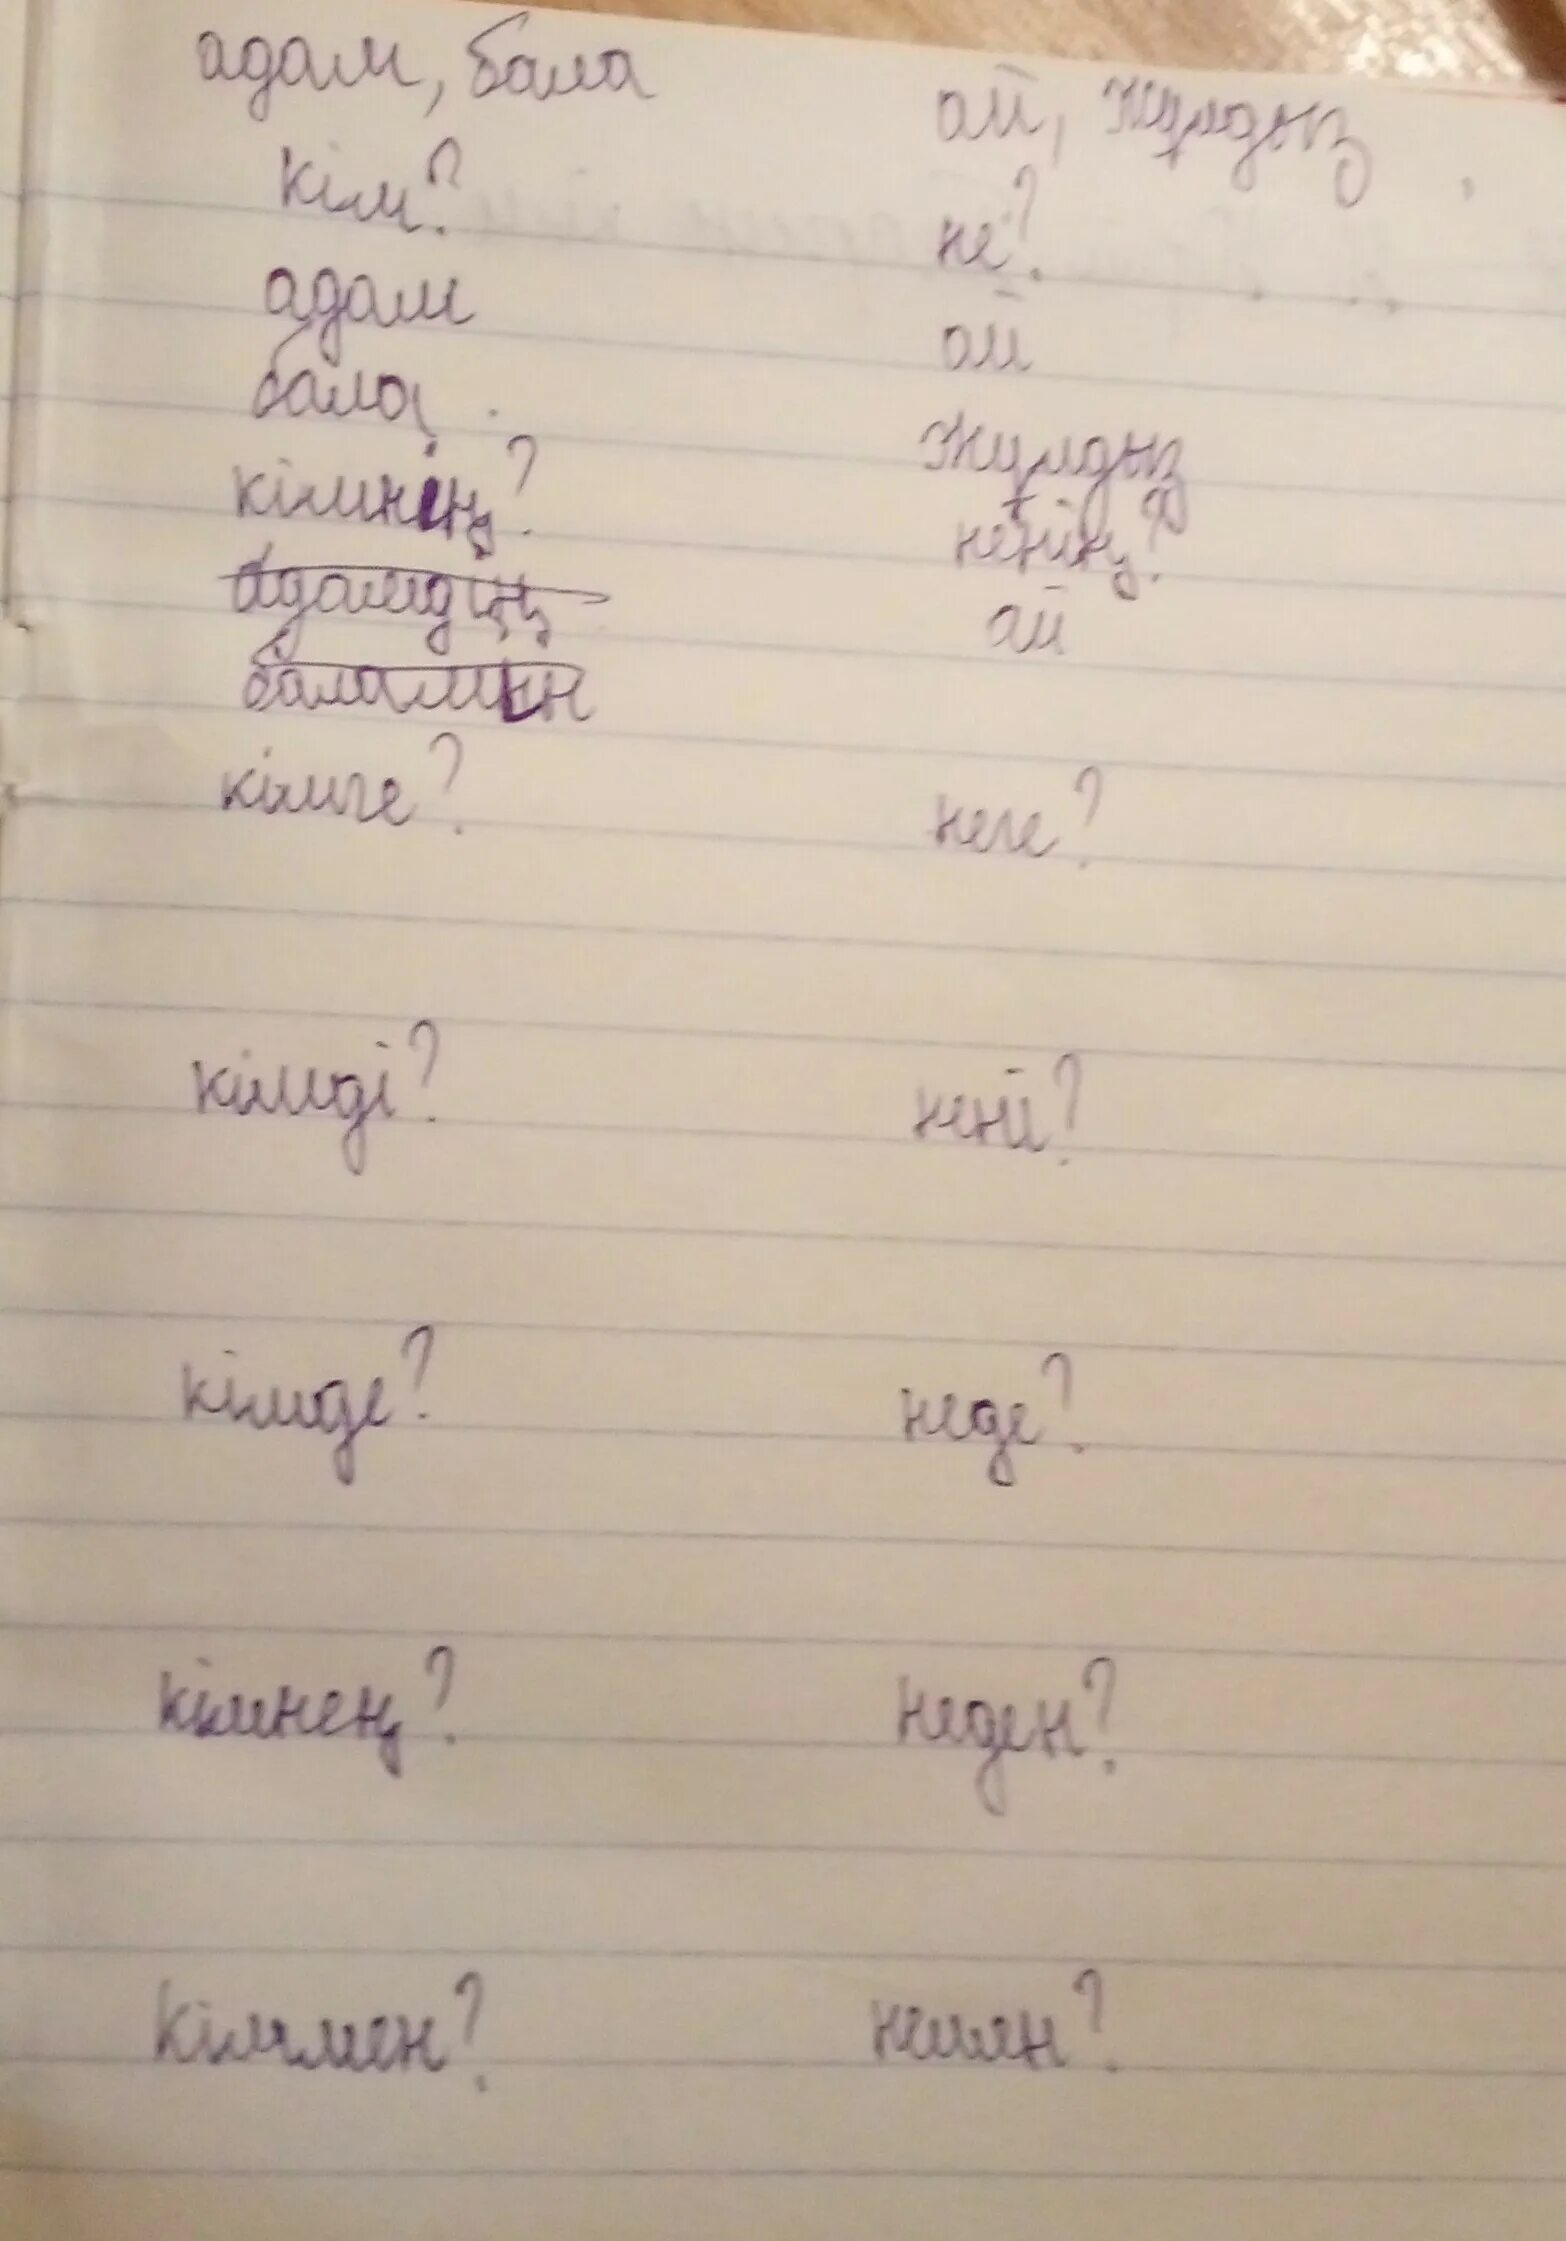 адам, бала
ай, жұлдыз
кім?
не?
адам
ай
бала
жұлдыз
кімнің?
ненің?
адамдің
ай
баламын
кімге?
неге?
кімді?
нені?
кімде?
неде?
кімнең?
неден?
кіммен?
немен?